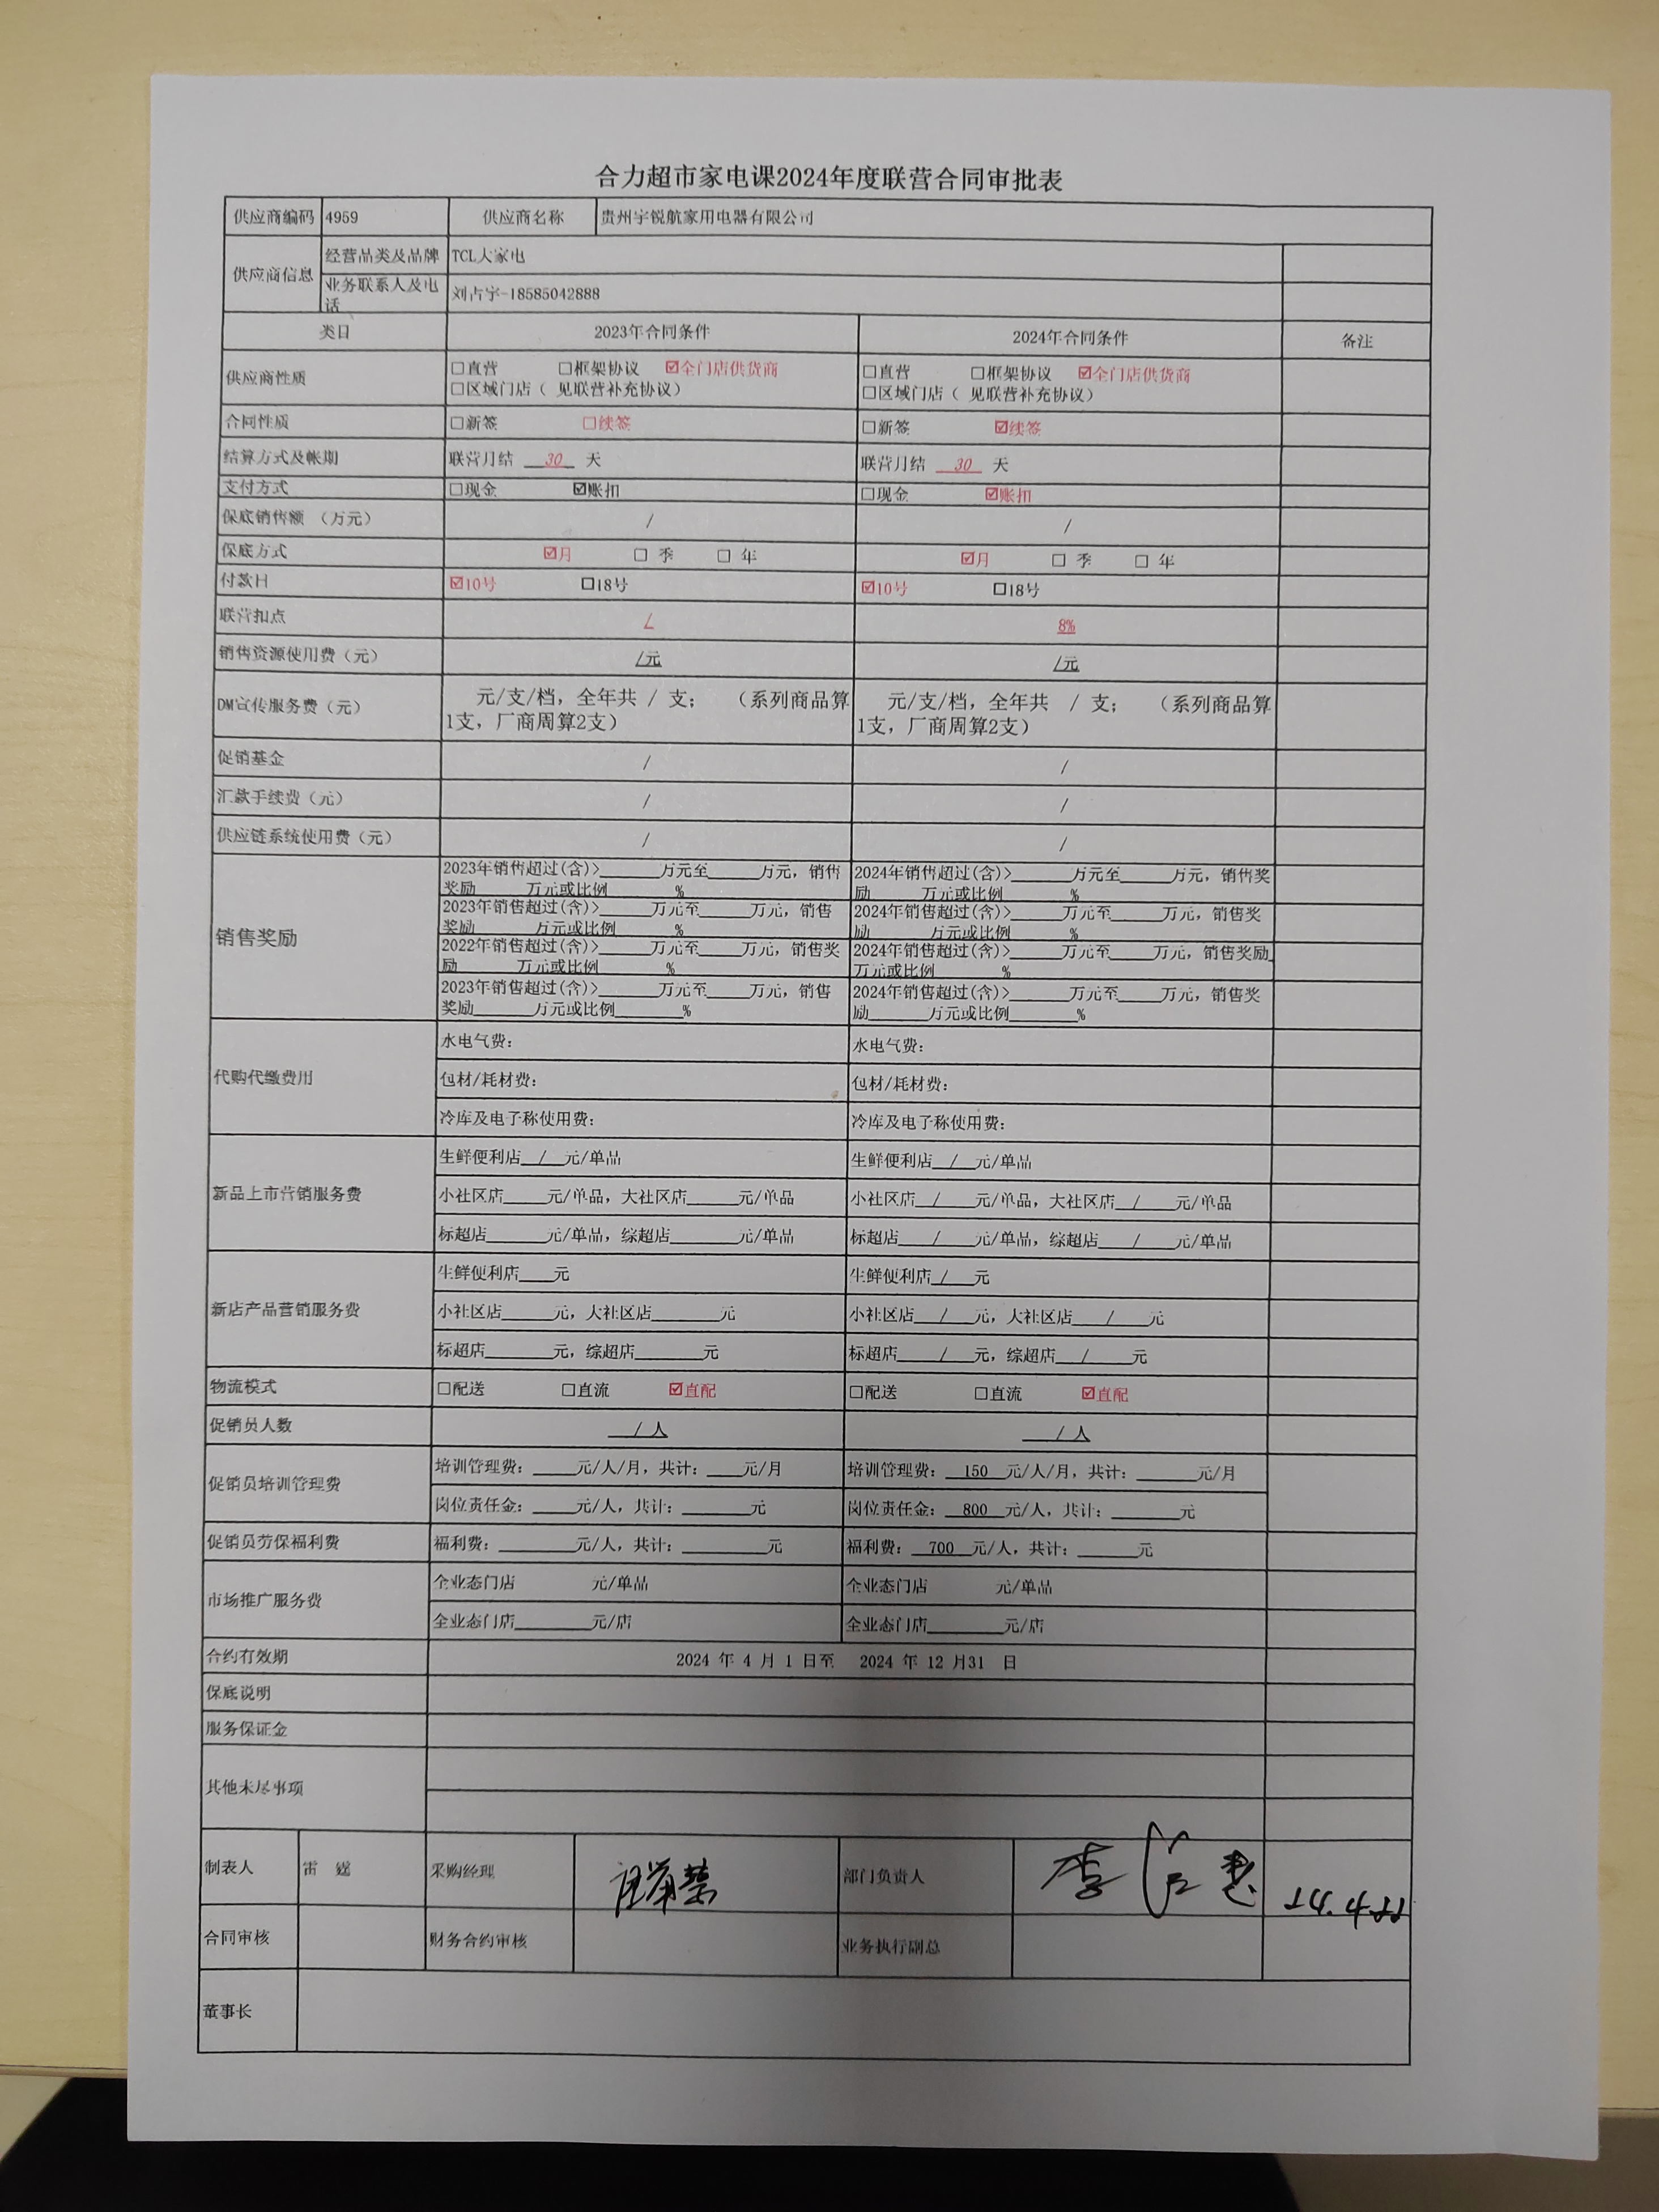 合力超市家电课2024年度联营合同审批表
供应商编码 4959 供应商名称 贵州宇锐航家用电器有限公司
供应商信息 经营品类及品牌 TCL大家电
业务联系人及电话 刘占宇-18585042888
类目 2023年合同条件 2024年合同条件 备注
供应商性质 □直营 □框架协议 ☑全门店供货商 □直营 □框架协议 ☑全门店供货商
□区域门店（ 见联营补充协议） □区域门店（ 见联营补充协议）
合同性质 □新签 □续签 □新签 ☑续签
结算方式及帐期 联营月结 30 天 联营月结 30 天
支付方式 □现金 ☑账扣 □现金 ☑账扣
保底销售额 （万元） / /
保底方式 ☑月 □ 季 □ 年 ☑月 □ 季 □ 年
付款日 ☑10号 □18号 ☑10号 □18号
联营扣点 / 8%
销售资源使用费（元） /元 /元
DM宣传服务费（元） 元/支/档，全年共 / 支； （系列商品算 元/支/档，全年共 / 支； （系列商品算
1支，厂商周算2支） 1支，厂商周算2支）
促销基金 / /
汇款手续费（元） / /
供应链系统使用费（元） / /
销售奖励 2023年销售超过(含)>______万元至_____万元，销售 2024年销售超过(含)>______万元至_____万元，销售奖
奖励_____万元或比例_______% 励_____万元或比例_______%
2023年销售超过(含)>_____万元至_____万元，销售 2024年销售超过(含)>_____万元至_____万元，销售奖
奖励______万元或比例_______% 励______万元或比例_______%
2022年销售超过(含)>_____万元至_____万元，销售奖 2024年销售超过(含)>_____万元至_____万元，销售奖励_
励______万元或比例_______% 万元或比例_______%
2023年销售超过(含)>______万元至_____万元，销售 2024年销售超过(含)>______万元至_____万元，销售奖
奖励______万元或比例_______% 励______万元或比例_______%
代购代缴费用 水电气费： 水电气费：
包材/耗材费： 包材/耗材费：
冷库及电子称使用费： 冷库及电子称使用费：
新品上市营销服务费 生鲜便利店__/__元/单品 生鲜便利店__/__元/单品
小社区店_____元/单品，大社区店______元/单品 小社区店___/___元/单品，大社区店__/____元/单品
标超店_______元/单品，综超店________元/单品 标超店____/____元/单品，综超店____/____元/单品
新店产品营销服务费 生鲜便利店____元 生鲜便利店_/___元
小社区店______元，大社区店________元 小社区店___/___元，大社区店____/____元
标超店________元，综超店________元 标超店_____/___元，综超店___/_____元
物流模式 □配送 □直流 ☑直配 □配送 □直流 ☑直配
促销员人数 ___/ 人 ____/ 人
促销员培训管理费 培训管理费：_____元/人/月，共计：____元/月 培训管理费： 150 元/人/月，共计：_______元/月
岗位责任金：_____元/人，共计：________元 岗位责任金： 800 元/人，共计：________元
促销员劳保福利费 福利费：_________元/人，共计：__________元 福利费： 700 元/人，共计：_______元
市场推广服务费 全业态门店 元/单品 全业态门店 元/单品
全业态门店_________元/店 全业态门店_________元/店
合约有效期 2024 年 4 月 1 日至 2024 年 12 月31 日
保底说明
服务保证金
其他未尽事项
制表人 雷 采购经理 部门负责人 李
合同审核 财务合约审核 业务执行副总
董事长